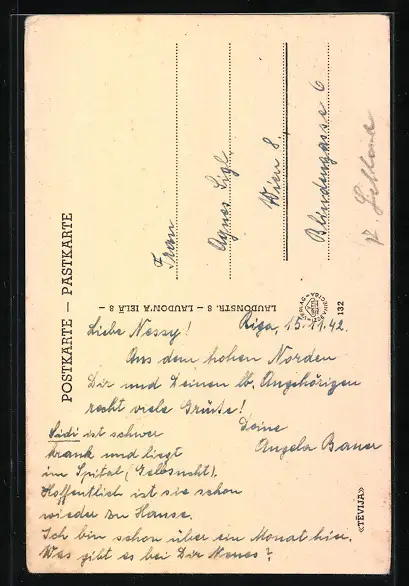 POSTKARTE — PASTKARTE
Frau
Agnes Sigl,
Wien 8.
Blindengasse 6
LAUDONSTR. 8 – LAUDON'A IELĀ 8
132
«TĒVIJA»
Riga, 15.11.42.
Liebe Nessy!
Aus dem hohen Norden
Dir und Deinen lb. Angehörigen
recht viele Grüße!
Deine
Angela Bauer
Sidi ist schwer
krank und liegt
im Spital (Gelbsucht).
Hoffentlich ist sie schon
wieder zu Hause.
Ich bin schon über ein Monat hier.
Was gibt es bei Dir Neues?